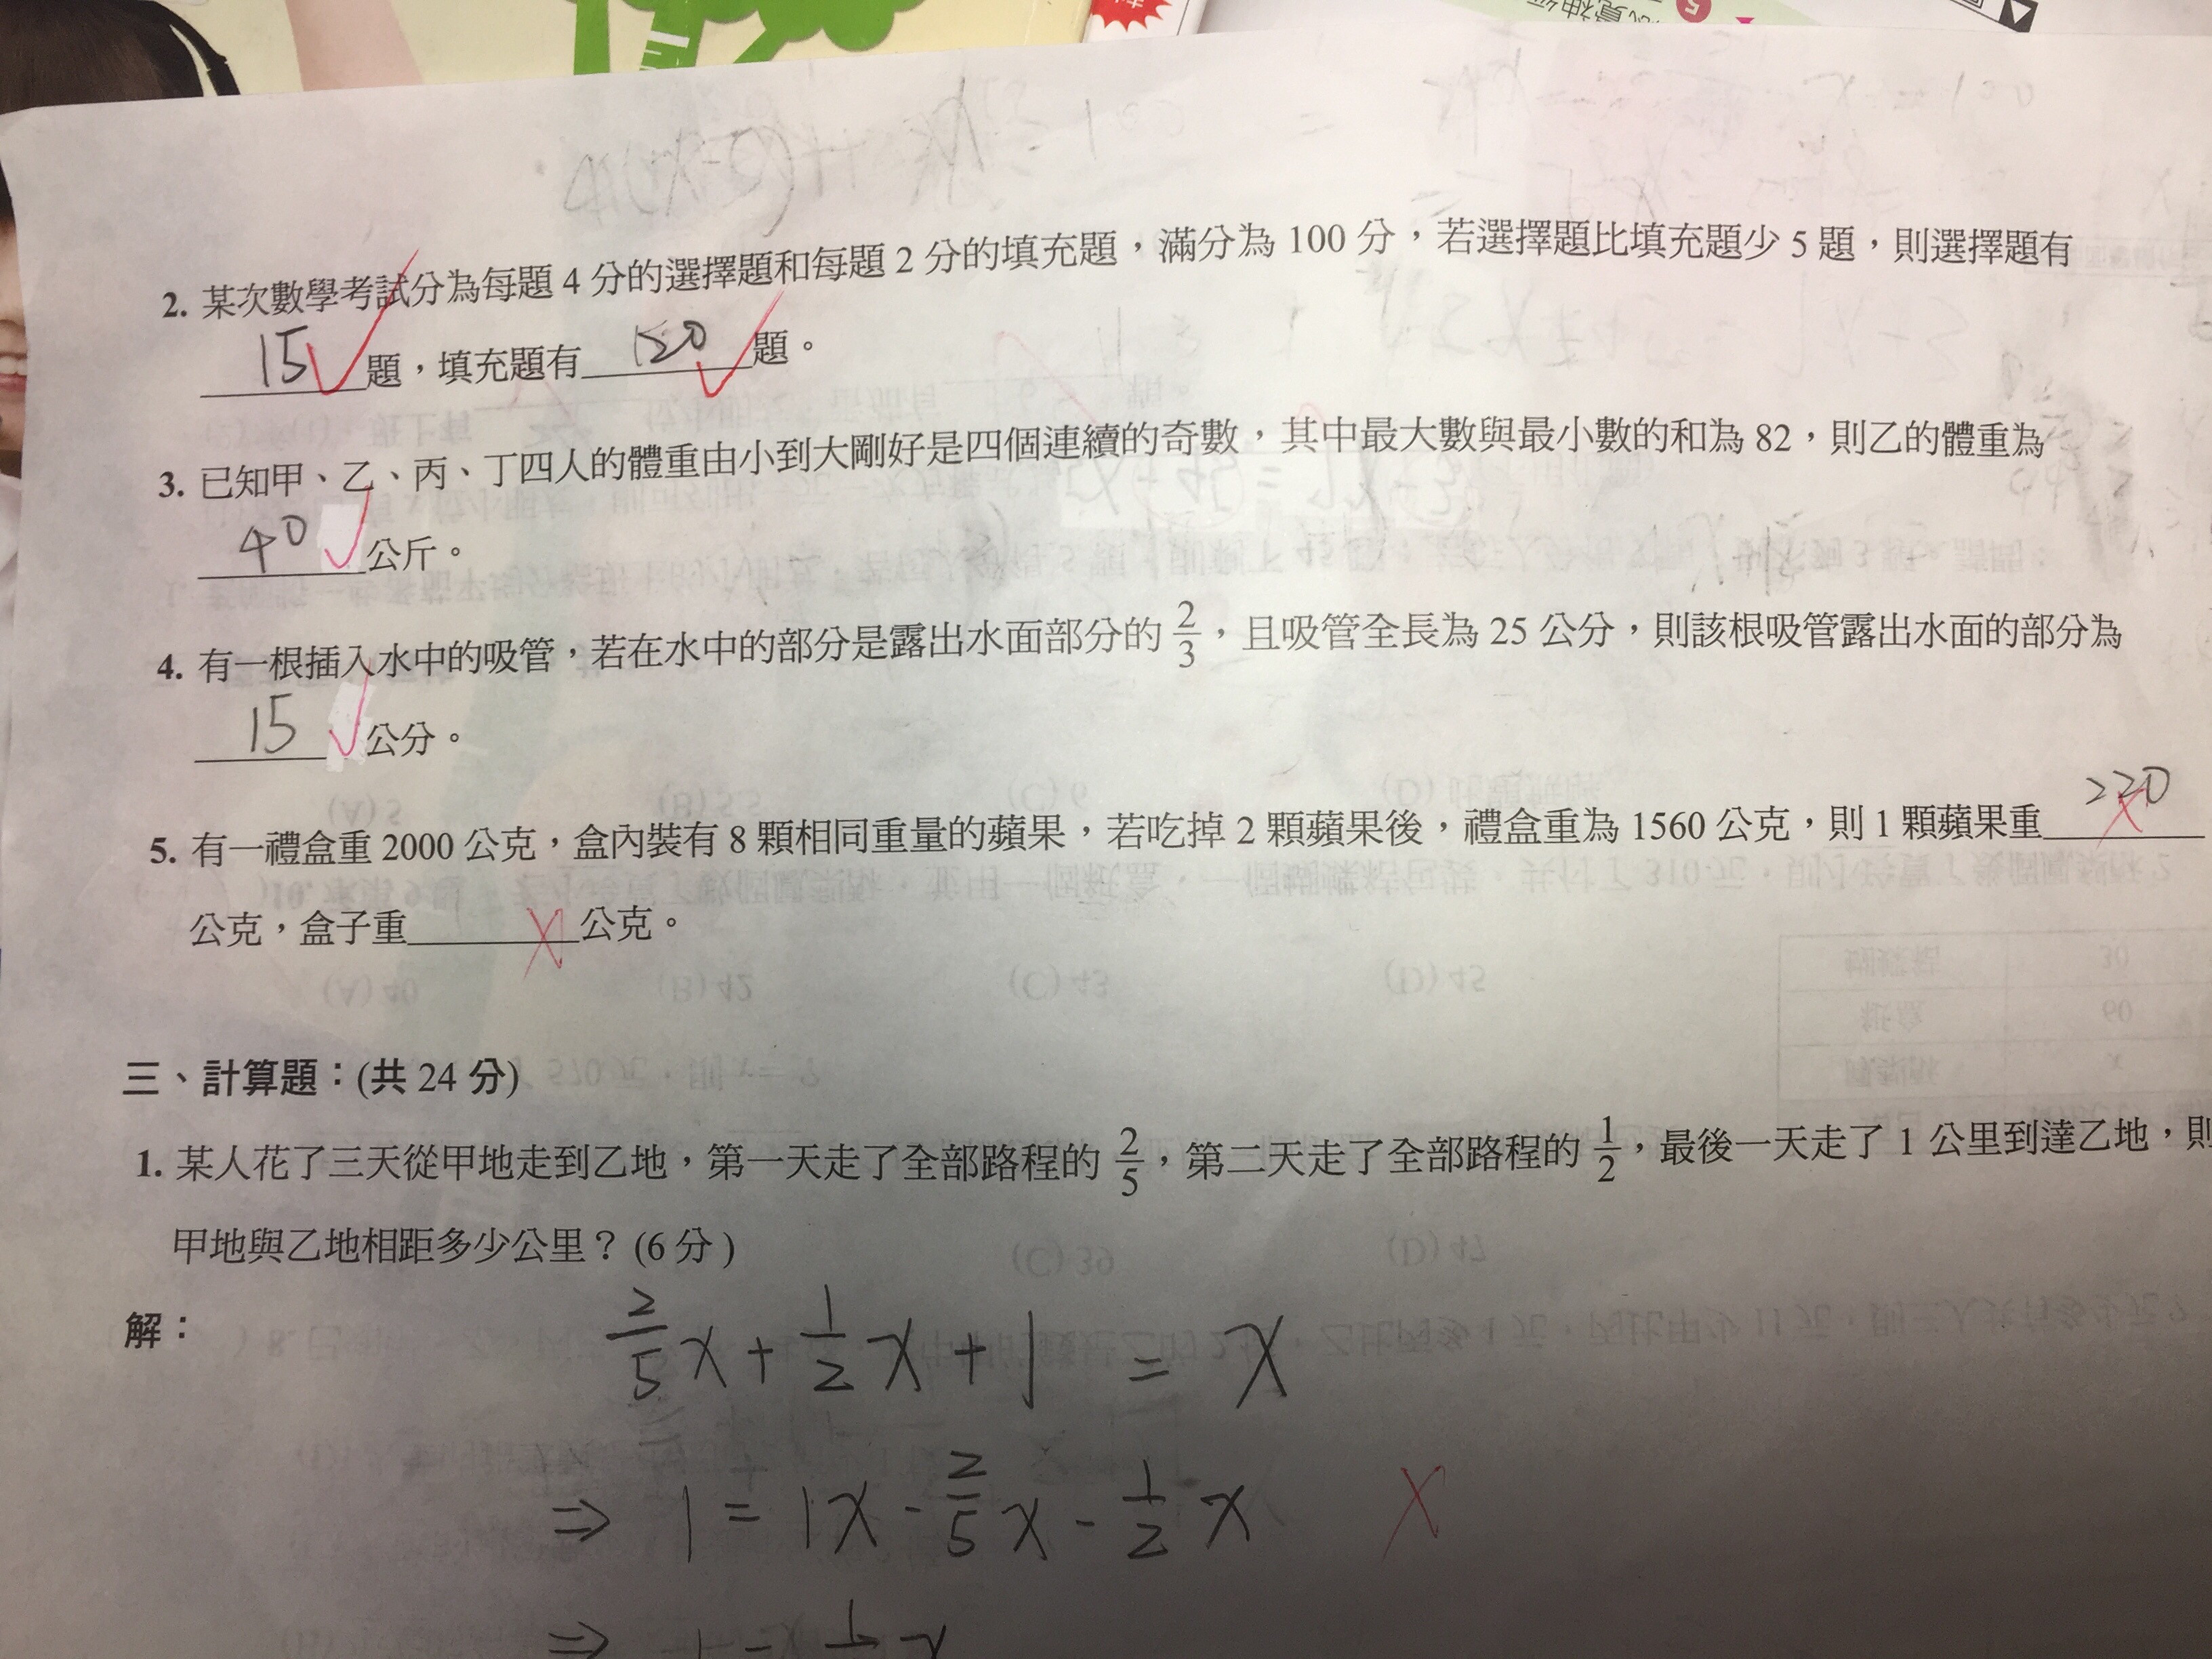 2. 某次數學考試分為每題 4 分的選擇題和每題 2 分的填充題，滿分為 100 分，若選擇題比填充題少 5 題，則選擇題有
15 題，填充題有 題。
3. 已知甲、乙、丙、丁四人的體重由小到大剛好是四個連續的奇數，其中最大數與最小數的和為 82，則乙的體重為
40 公斤。
4. 有一根插入水中的吸管，若在水中的部分是露出水面部分的 2/3，且吸管全長為 25 公分，則該根吸管露出水面的部分為
15 公分。
5. 有一禮盒重 2000 公克，盒內裝有 8 顆相同重量的蘋果，若吃掉 2 顆蘋果後，禮盒重為 1560 公克，則 1 顆蘋果重 220
公克，盒子重 公克。
三、計算題：(共 24 分)
1. 某人花了三天從甲地走到乙地，第一天走了全部路程的 2/5，第二天走了全部路程的 1/2，最後一天走了 1 公里到達乙地，則
甲地與乙地相距多少公里？(6 分)
解：
2/5 x + 1/2 x + 1 = x
⇒ 1 = 1x - 2/5 x - 1/2 x